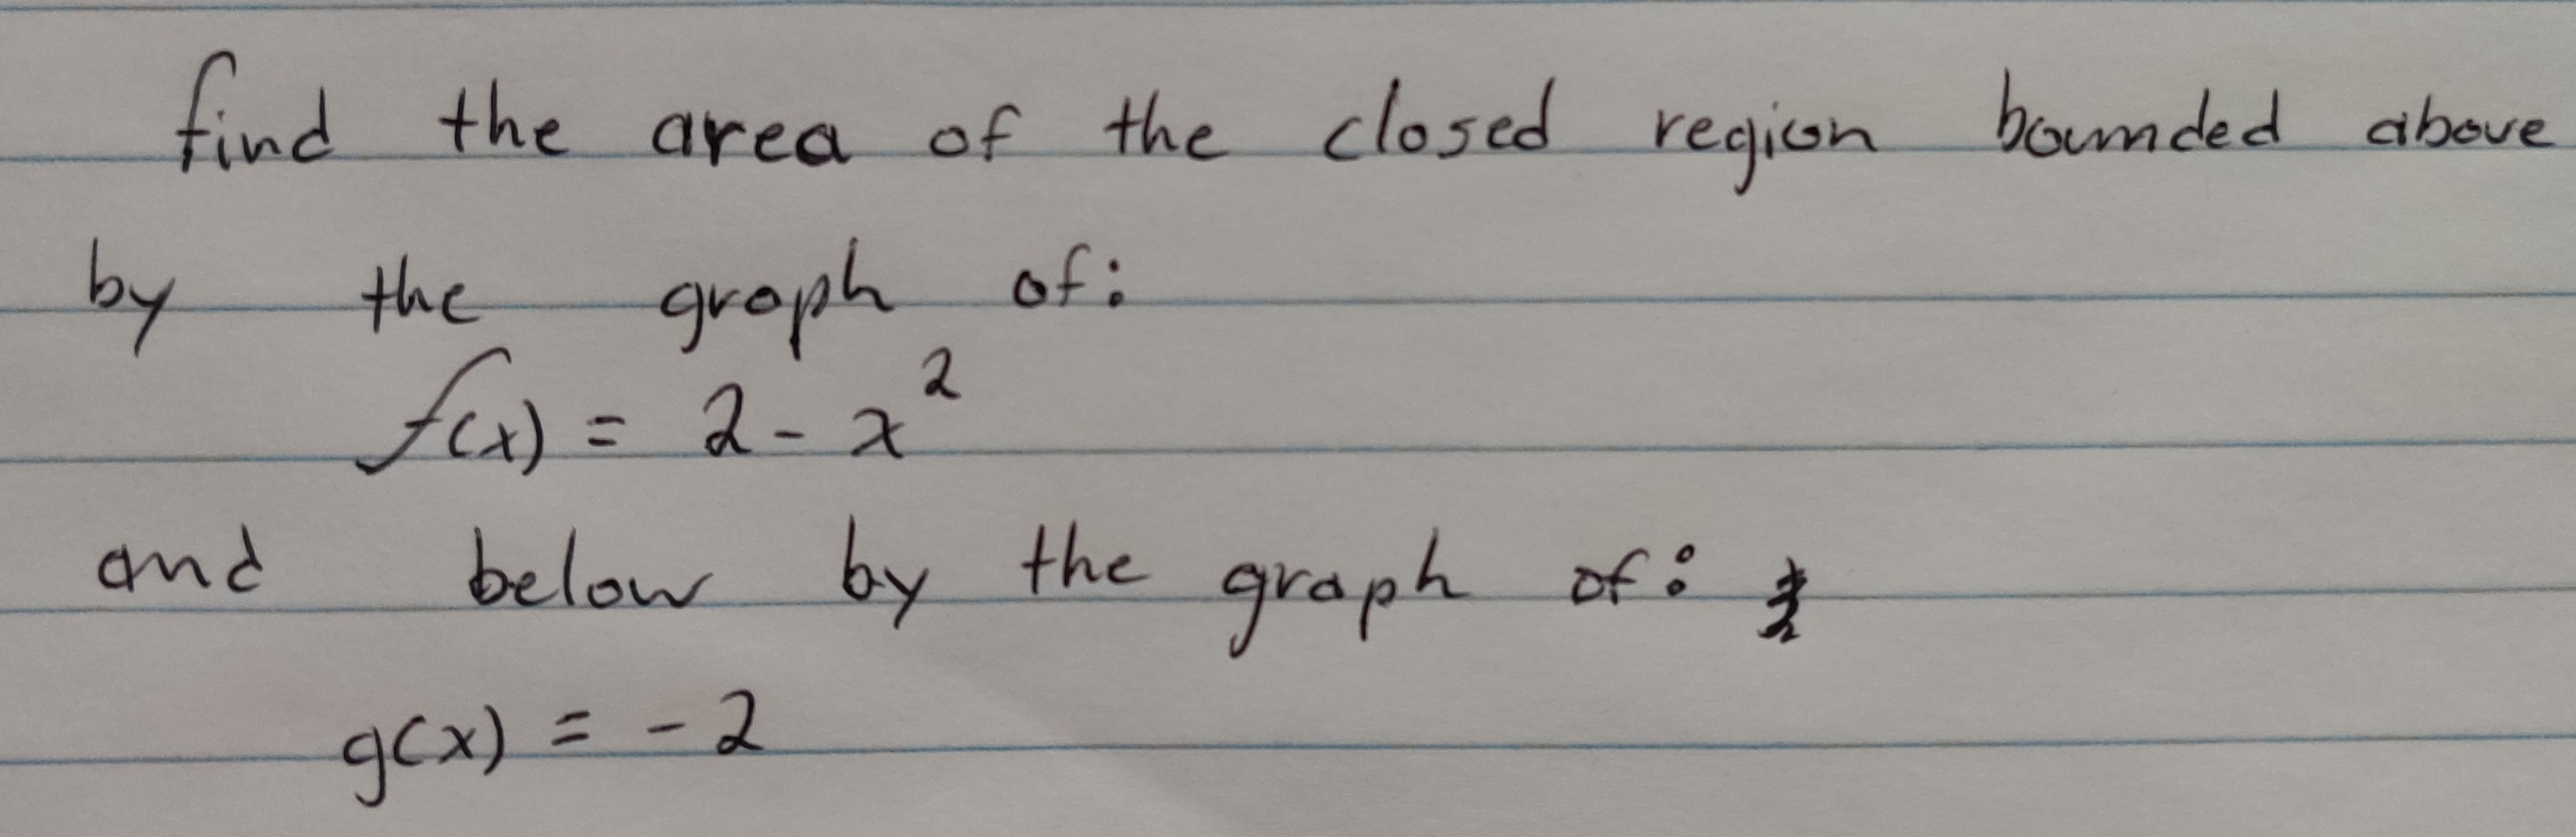 find the area of the closed region bounded above
by the graph of:
f(x) = 2 - x²
and below by the graph of:
g(x) = -2